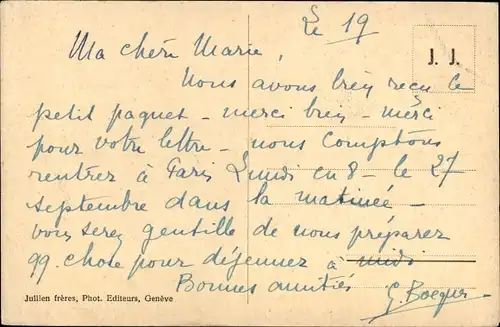 Le 19
J. J.
Ma chère Marie,
Nous avons bien reçu le
petit paquet - merci bien - merci
pour votre lettre - nous comptons
rentrer à Paris Lundi en 8 - le 27
septembre dans la matinée -
vous serez gentille de nous préparer
qq. chose pour déjeuner à midi
Bonnes amitiés
Jullien frères, Phot. Editeurs, Genève